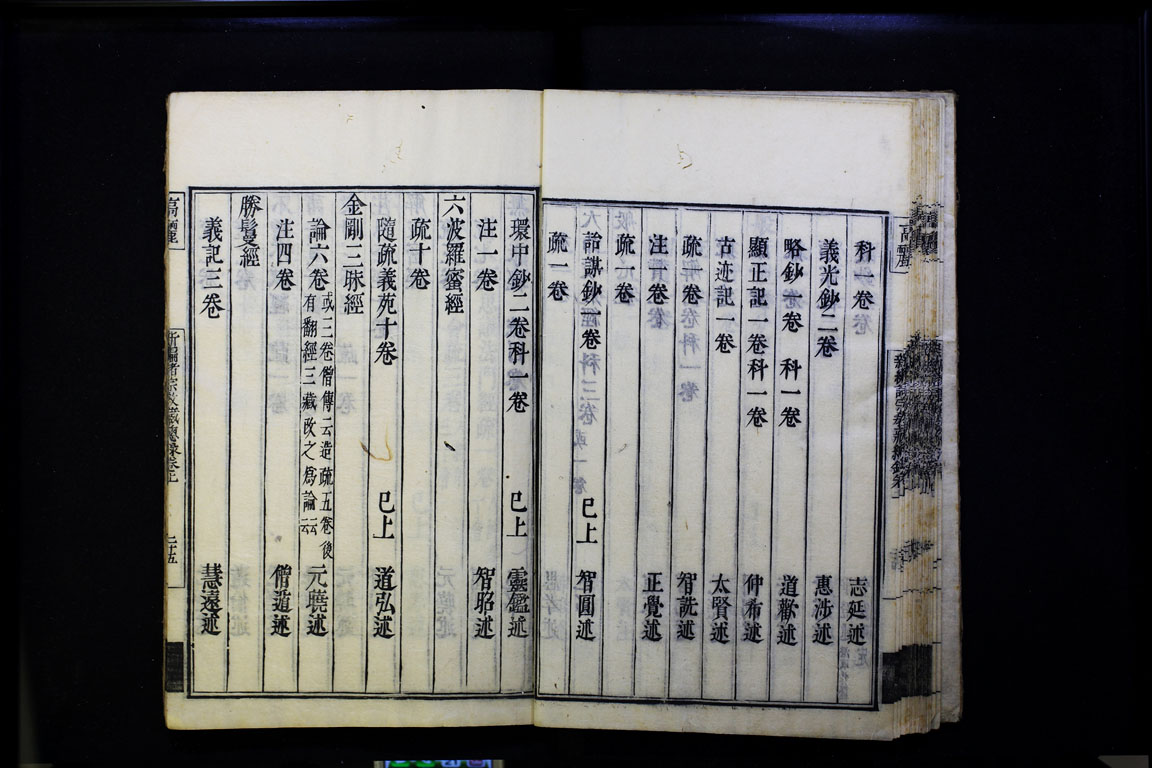 科一卷 志延述
義光鈔二卷 惠涉述
略鈔一卷 科一卷 道歡述
顯正記一卷科一卷 仲希述
古迹記一卷 太賢述
疏一卷 智詵述
注一卷 正覺述
疏一卷
詒謀鈔一卷 已上 智圓述
疏一卷
環中鈔二卷科一卷 已上 靈鑑述
注一卷 智昭述
六波羅蜜經
疏十卷
隨疏義苑十卷 已上 道弘述
金剛三昧經
論六卷 或三卷僧傳云造疏五卷後有翻經三藏改之爲論云云 元曉述
注四卷 僧遁述
勝鬘經
義記三卷 慧遠述
高麗
新編諸宗教藏總錄卷上
二十五